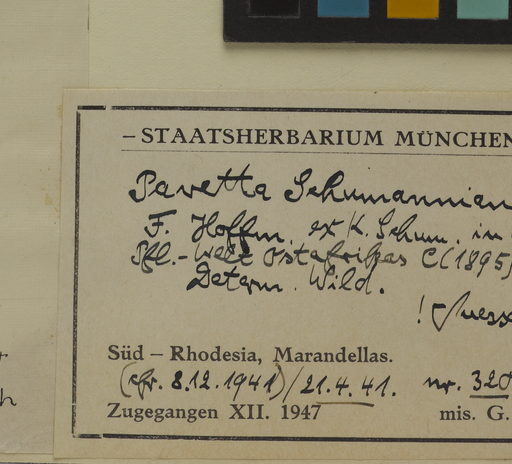 – STAATSHERBARIUM MÜNCHEN
Pavetta Schumannian
F. Hoffm. ex K. Schum. in
Pfl.-Welt Ostafrikas C (1895)
Determ. Wild.
! Suess
Süd – Rhodesia, Marandellas.
(cfr. 8.12.1941) / 21.4.41. nr. 320
Zugegangen XII. 1947 mis. G.